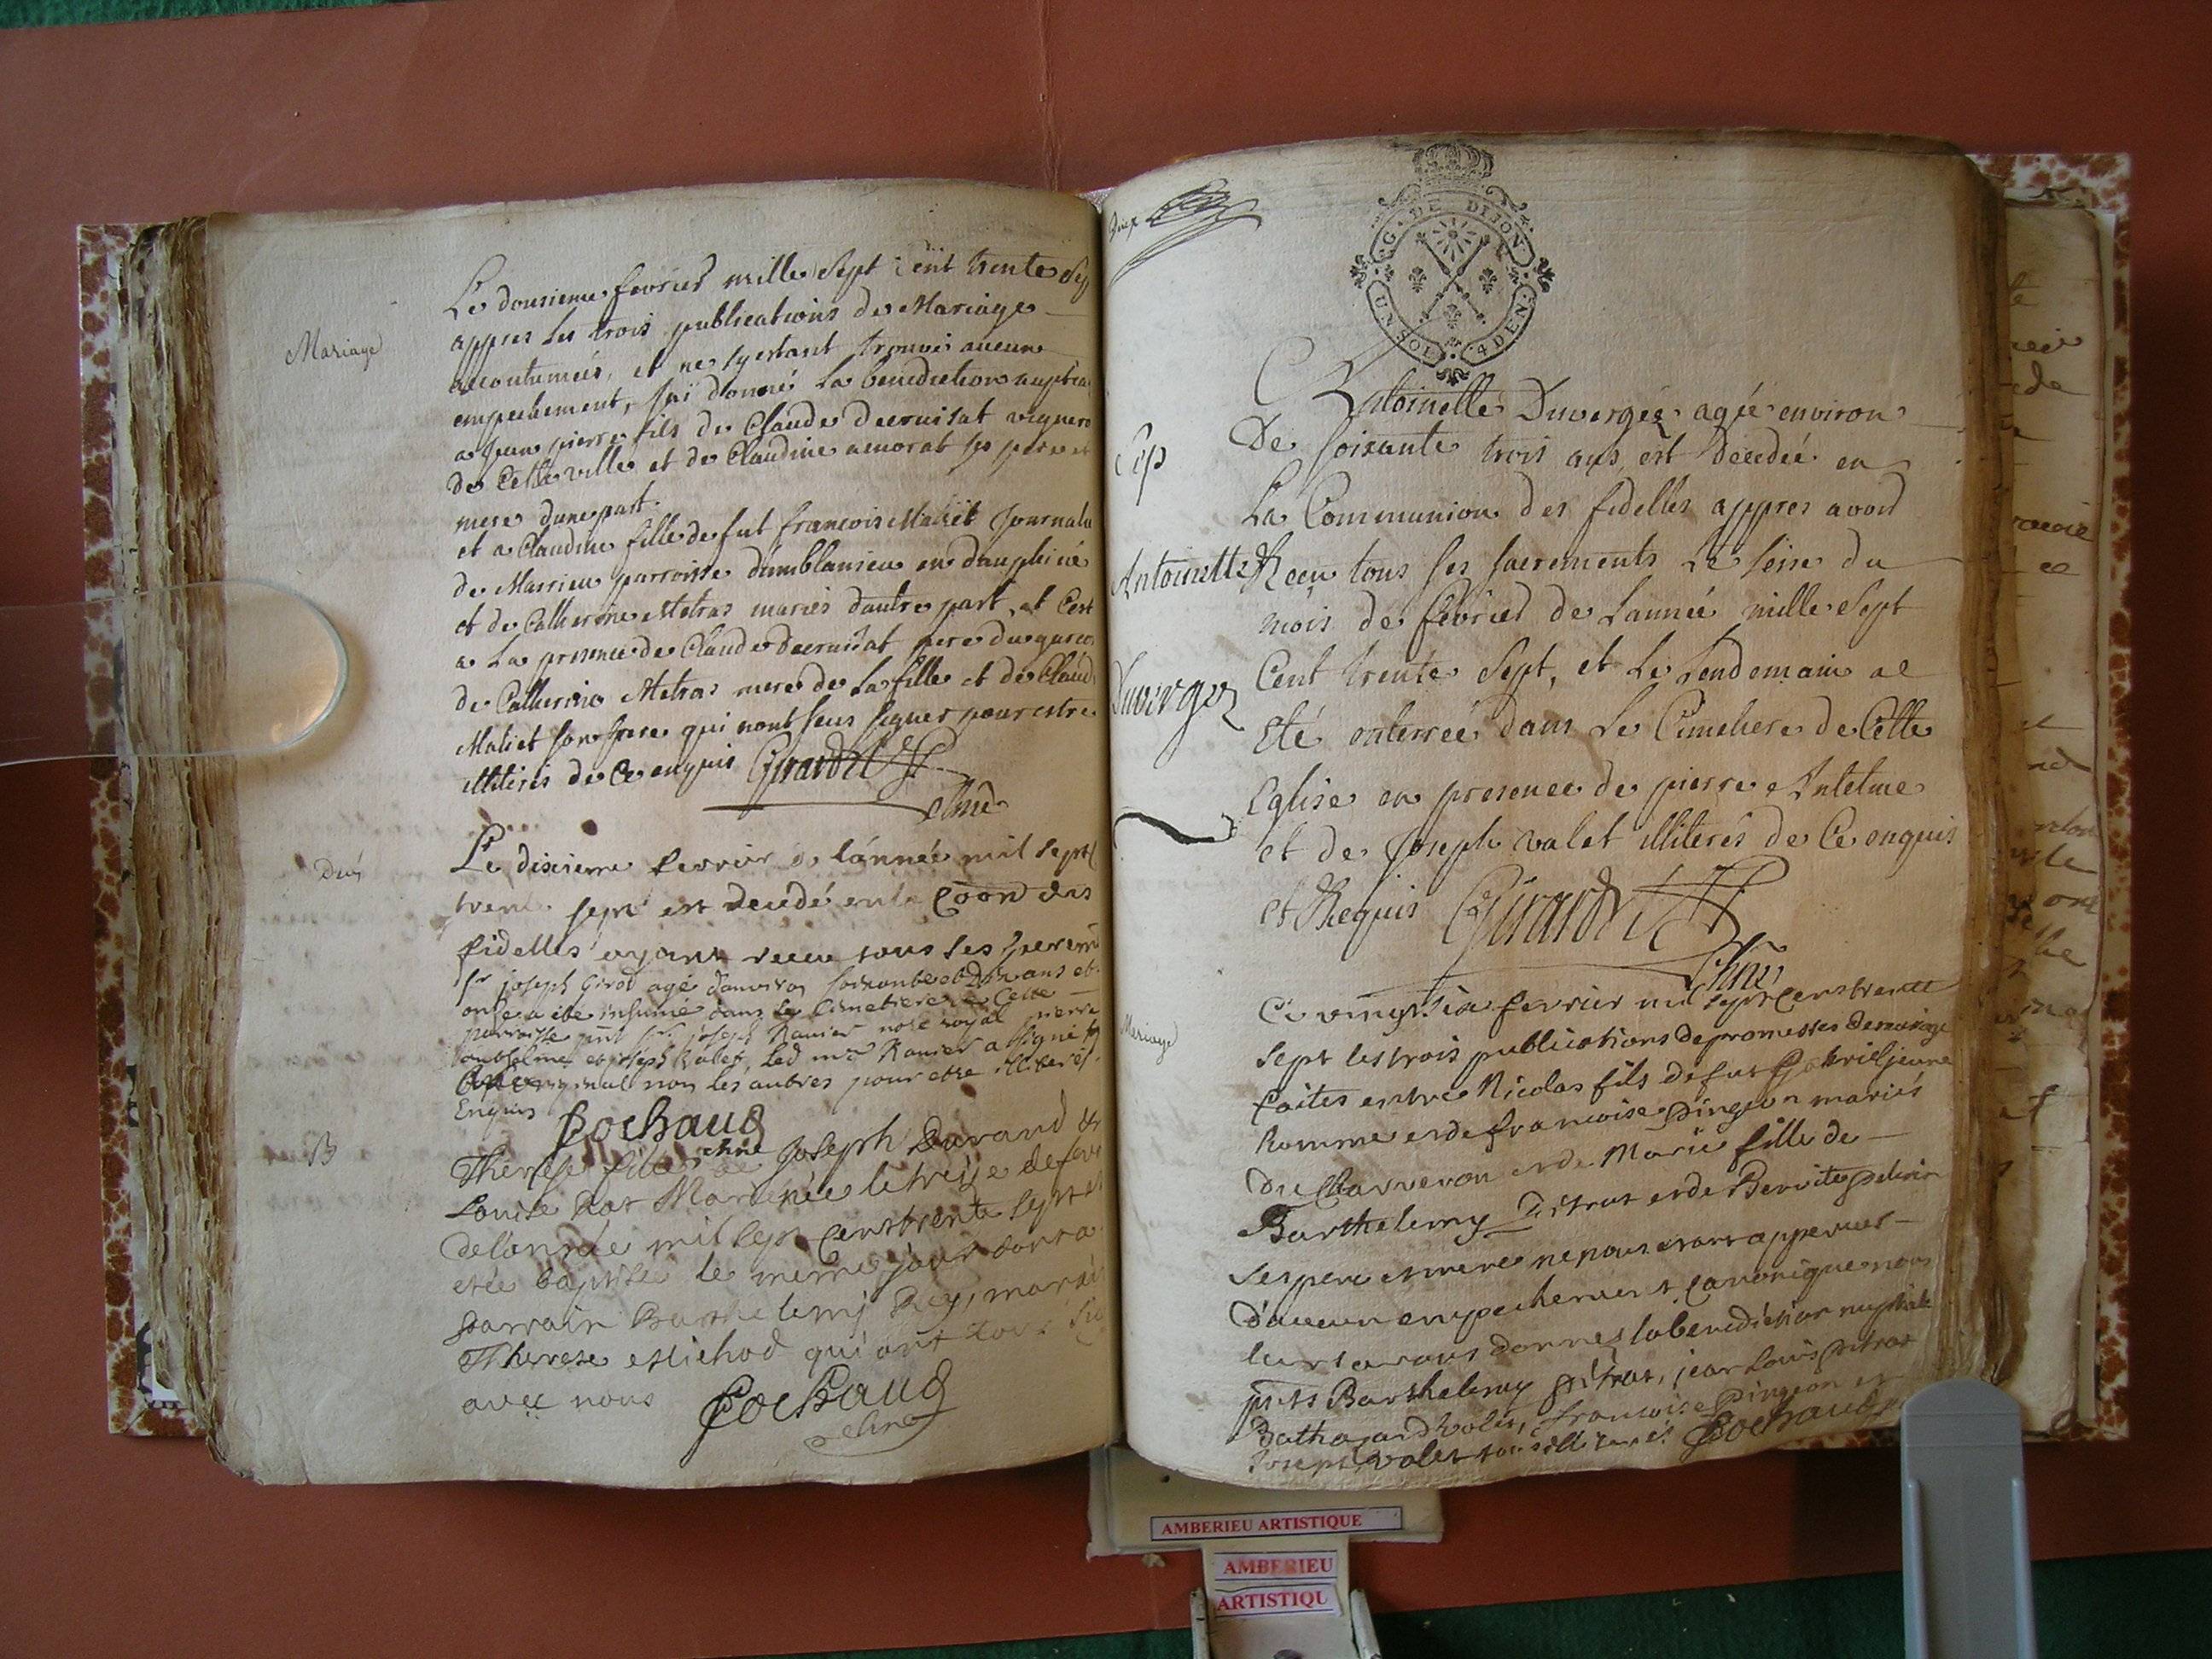 Mariage
Le dousieme fevrier mille sept cent trente sep
appres les trois publications de Mariage
accoutumées, et ne sy estant trouvé aucun
empechement, jai donné la benediction nuptia
a jean pierre fils de Claude decruisat vignero
de Cette ville et de Claudine amorat ses pere et
mere dune part.
et a Claudine fille de fut francois Maliet Journalie
de Marrieu parroisse dumblanieu en dauphiné
et de Catherine Metras mariés dautre part, et Cest
a La presence de Claude decruisat pere du garcon
de Catherine Metras mere de La fille et de Claude
Maliet son frere qui nont sceus signer pour estre
illiterés de Ce enquis Girardet
chne
Le dixieme fevrier de lánnée mil sept
trente sept est decedé en la Coon des
fidelles ayant receu tous ses sacrem
sr joseph Girod agé d'environ soixante et dix ans et
onse a été inhumé dans le Cimetiere de Cette
parroisse pnt sr joseph Ranier nore royal pierre
anthelme et joseph Valet, led mre Ranier a signé
non les autres pour etre illiterés
Enquis Cochaud
chne
B
Therese fille de Joseph Durand et
Louise Rat Mariés née le treize de fevr
de l'année mil sept cents trente sept et
etée baptisé le meme jour dont a
parrain Barthelemy Rey, marrai
Therese Michod qui ont tous si
avec nous Cochaud
chne
G. DE DIJON
UN SOL 4 DEN.
Sep
Antoinette
Duverger
Antoinette Duvergée agée environ
De soixante trois ans, est decedée en
La Communion des fidelles appres avoir
Reçu tous ses sacrements Le seise du
mois de fevrier de Lannée mille sept
Cent trente sept, et Le Lendemain a
Eté enterrée dans Le Cimetiere de Cette
Eglise en presence de pierre Antelme
et de Joseph valet illiterés de Ce enquis
et Requis Girardet
chne
Mariage
Ce vingt six fevrier mil sept cens trente
sept les trois publications de promesses de mariage
faites entre Nicolas fils de fut Gabriel jeune
homme et de francoise pingeon mariés
du Charveron et de Marie fille de
Barthelemy pitrat et de Benoite
ses pere et mere ne nous etant apperceus
d'aucun empechement canonique nous
leurs avons donnés la benediction nuptiale
pnts Barthelemy pitrat, jean Louis pitrat
francoise pingeon et
joseph valet tous illiterés Cochaud
AMBERIEU ARTISTIQUE
AMBERIEU
ARTISTIQU